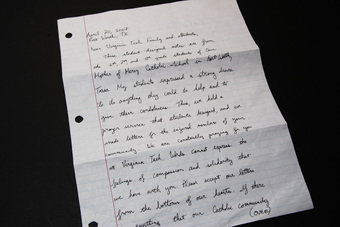 April 20, 2007
Fort Worth, TX
Dear Virginia Tech Family and students,
These student-designed notes are from
the 6th, 7th, and 8th grade students of Our
Mother of Mercy Catholic School in Fort Worth
Texas. My students expressed a strong desire
to do anything they could to help and to
give their condolences. Thus, we held a
prayer service that students designed, and we
made letters for the injured members of your
community. We are constantly praying for you
at Virginia Tech. Words cannot express the
feelings of compassion and solidarity that
we have with you. Please accept our letters
from the bottom of our hearts. If there
is anything that our Catholic community
(over)